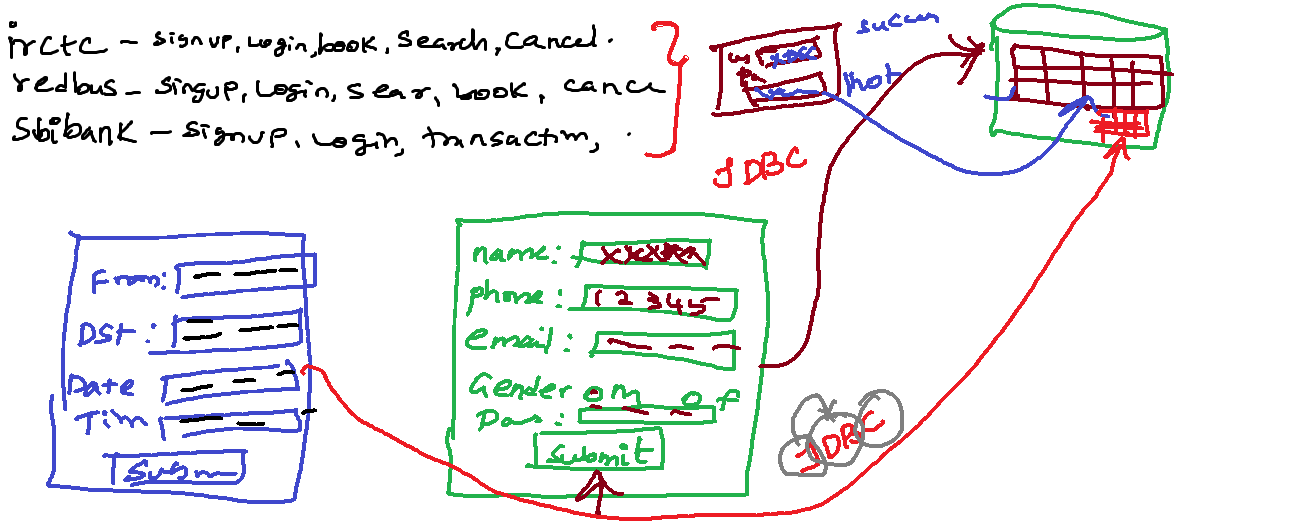 irctc - signup, Login, book, Search, Cancel.
redbus - singup, Login, Sear, book, cance
Sbibank - signup, Login, transactim, .
succun
un XDBC
pu
not
JDBC
From:
DSt :
Date
Tim
Subm
name: xxxxx
phone: 12345
email:
Gender o m o f
Dos:
Submit
JDBC